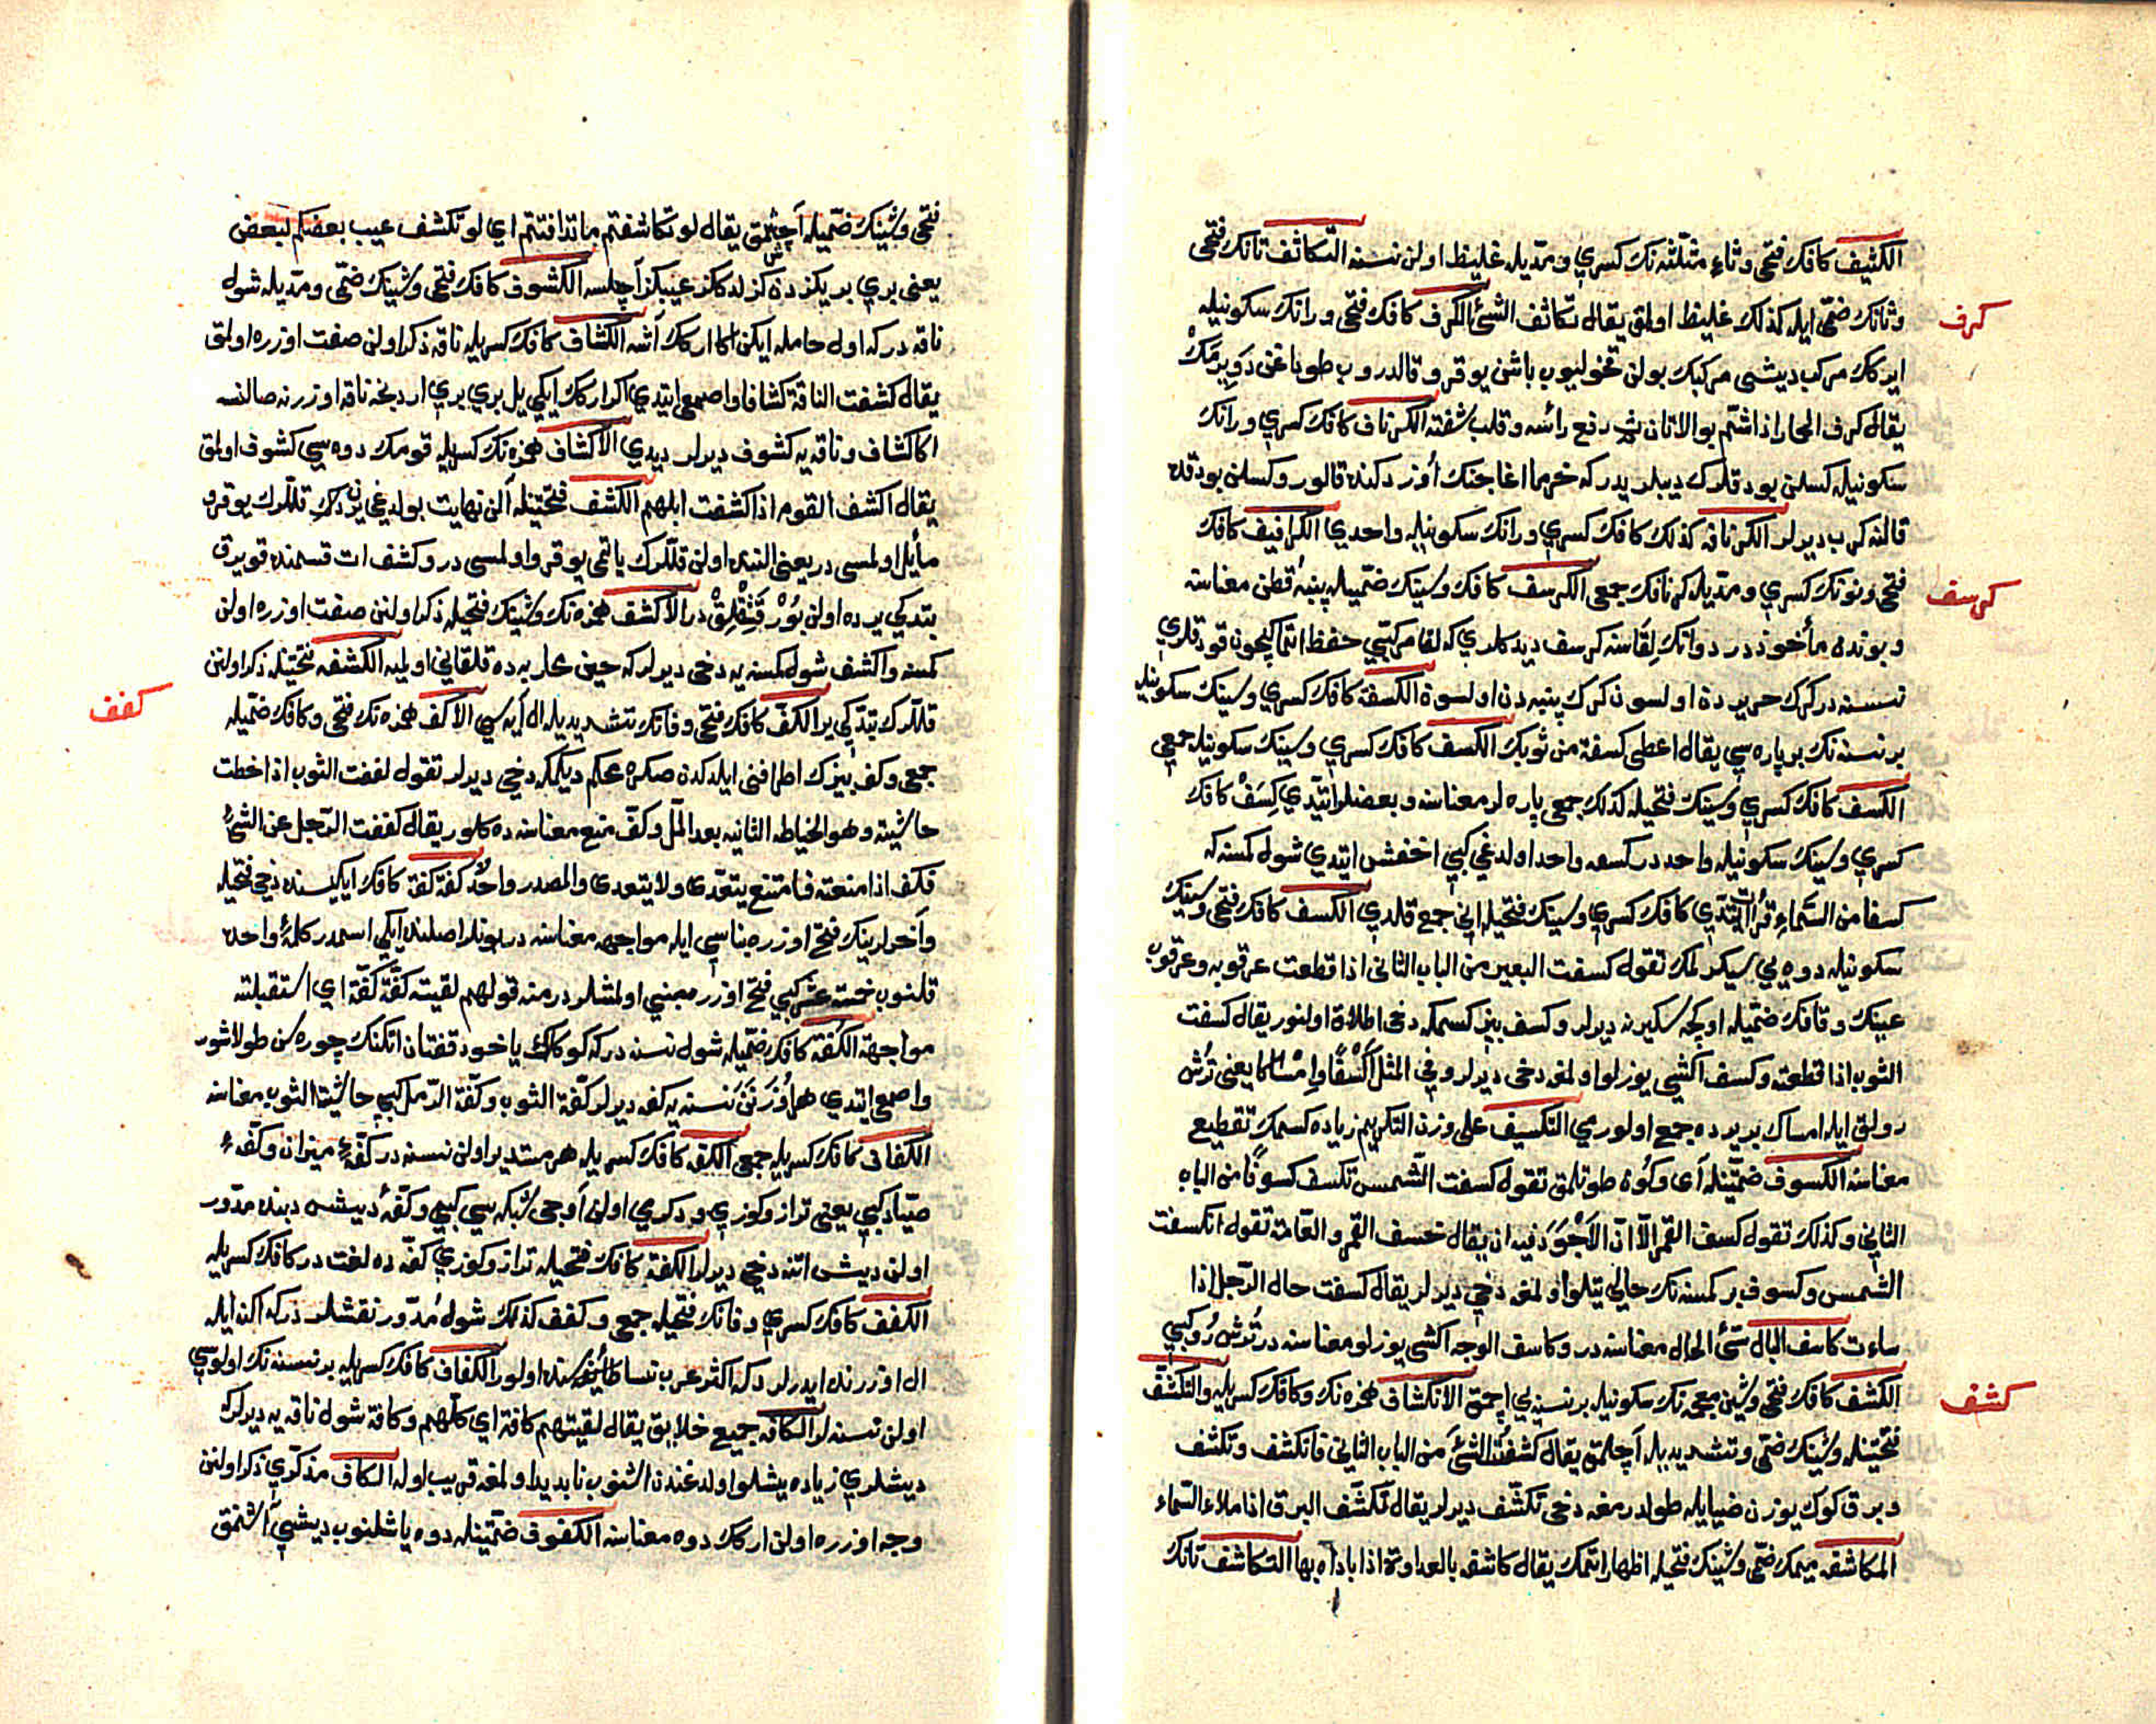 الكثيف كافك فتحى وثاء مثلثه نك كسري ومدّيله غليظ اولن نسنه التكاثف تانك فتحى
وثانك ضمّى ايله كذلك غليظ اولمق يقال تكاثف الشئ الكرف كافك فتحى ورانك سكونيله
كرف
ايركك مركب ديشى مركبك بولن قخوليوب باشن يوقرو قالدروب طوداغن دَوِيرمَكْ
يقال كرف الحمار اذا اشتم بوالاتان ثم رفع رأسه وقلب شفته الكرناف كافك كسري ورانك
سكونيله كسلن بودقلرك ديبلريدر كه خرما اغاجنك اوزردكنده قالور وكسلن بودقده
قالنه كرب ديرلر الكرنافه كذلك كافك كسري ورانك سكونيله واحدي الكرافيف كافك
فتحى ونونك كسري ومدّيله كرنافك جمعى الكرسف كافك وسينك ضمّيله پنبه قطن معناسنه
كرسف
وبوندن مأخوذدر دواتك لِقَاسنه كرسف ديدكلري كه لقا مركبّي حفظ اتماكيچون قودقلري
نسنه در كرك حريردن اولسون كرك پنبه دن اولسون الكسفة كافك كسري وسينك سكونيله
بر نسنه نك بر پاره سي يقال اعطنى كسفة من ثوبك الكسف كافك كسري وسينك سكونيله جمعي
الكسف كافك كسري وسينك فتحيله كذلك جمعى پاره لر معناسنه وبعضلر ايتّدي كِسَفْ كافك
كسري وسينك سكونيله واحددر كسعه واحد اولدغي كبي اخفش ايتدي شول كمسنه كه
كسفا من السَّماء قرأ ايتدّي كافك كسري وسينك فتحيله انى جمع قلدي الكسف كافك فتحى وسينك
سكونيله دوه يي سيكرلمك تقول كسفت البعير من الباب الثانى اذا قطعت عرقوبه وعرقوب
عينك وقافك ضمّيله اوكچه سكيرنه ديرلر وكسف بيز كسمكه دخى اطلاق اولنور يقال كسفت
الثوب اذا قطعته وكسف اكشي يوزلو اولمغه دخى ديرلر وفي المثل أَكَسْفًا وإمْسَاكا يعنى تُرُش
رولق ايله امساك بر يرده جمع اولورمي التكسيف على وزن التكريم زياده كسمك تقطيع
معناسنه الكسوف ضمّتينله آى وكُون طوتلمق تقول كسفت الشّمس تكسف كسوفًا من الباب
الثاني وكذلك تقول كسف القمر الاّ انّ الاَجْوَدَ فيه ان يقال خسف القمر والعَامة تقول انكسفت
الشمس وكسوف بر كمسنه نك حالي يتلو اولمغه دخي ديرلر يقال كسفت حال الرّجل اذا
ساءت كاسف البال سّئ الحال معناسنه در وكاسف الوجه اكشى يوزلو معناسنه در تُرُش رُو كبي
الكشف كافك فتحى وشين معجمه نك سكونيله بر نسنه يي اچمق الانكشاف همزه نك وكافك كسريله والتكشّف
كشف
فتحتينله وشينك ضمّى وتشديديله اَچلمق يقال كشفْتُ الشئَ من الباب الثاني فانكشف وتكشف
وبرق كوك يوزن ضيايله طولدرمغه دخى تكشّف ديرلر يقال تَكشّف البرق اذا ملاء السّماء
المكاشفه ميمك ضمّى وشينك فتحيله اظهار اتمك يقال كاشفه بالعداوة اذا باداه بها التكاشف تانك
فتحى وشينك ضمّيله اَچشمق يقال لو تكاشفتم ما تدافنتم اي لو تكشف عيب بعضكم لبعض
يعنى بري بريكزدن كزلدككز عيبكز اَچلسه الكشوف كافك فتحى وشينك ضمّى ومدّيله شول
ناقه در كه اول حامله ايكن اكا اركك اَشه الكشاف كافك كسريله ناقه ذكر اولن صفت اوزره اولمق
يقال كشفت الناقة كشافا واصمعى ايتدي اكر اركك ايكي يل بري بري اردنجه ناقه اوزرنه صالنسه
اكا كشاف وناقه يه كشوف ديرلر ديدي الاكشاف همزه نك كسريله قومك دوه سي كشوف اولمق
يقال اكشف القوم اذا كشفت ابلهم الكشف فتحتينله اَلن نهايت بولدغي يردكى قللّرك يوقرو
مأيل اولمسى در يعنى النده اولن قللّرك ياتمى يوقرو اولمسى در وكشف ات قسمنده قويرق
بتدكي يرده اولن بُورْ قَشِقْلِقْ در الاكشف همزه نك وشينك فتحيله ذكر اولنن صفت اوزره اولن
كمسنه واكشف شول كمسنه يه دخى ديرلر كه حين محاربه ده قلقانى اولميه الكشفه فتحتينله ذكر اولنن
قللّرك بتدّكي ير الكفّ كافك فتحى وفانك تشديديله ال اَيه سي الاكف همزه نك فتحى وكافك ضمّيله
كفف
جمعى وكف بيزك اطرافنى ايلدكدن صكره محكم ديكمكه دخى ديرلر تقول كففت الثوب اذا خطت
حاشيته وهو الخياطه الثانيه بعد الملّ وكفّ منع معناسنه ده كلور يقال كففت الرّجل عن الشئ
فكف اذا منعته فامتنع يتعدّى ولا يتعدى والمصدر واحدٌ كفة كفة كافك ايكيسنده دخى فتحيله
واَخرلرينك فتح اوزره بناسي ايله مواجهه معناسنه در بونلر اصلنده ايكى اسمدر كلمهٔ واحده
قلنوب خمسة عشر كبي فتح اوزره مبني اولمشلردر منه قولهم لقيته كَفَّة كَفَّة اي استقبلته
مواجهة الكُفّة كافك ضمّيله شول نسنه در كه كوكلك ياخود قفتان اتكنك چوره سن طولاشور
واصمعى ايتدي هر اُوزَنَن نسنه يه كفه ديرلر كفّة الثوب وكفّة الرّمل كبي حاشية الثوب معناسنه
الكفاف كافك كسريله جمعى الكفه كافك كسريله هر مستدير اولن نسنه در كفّهٔ ميزان وكفّهٔ
صيّاد كبي يعنى ترازو كوزي ودكرمي اولن اَوجى شبكه سي كبي وكفّهٔ ديشى دبنده مدّور
اولن ديشى اتنه دخي ديرلر الكفة كافك فتحيله ترازو كوزي كفّه ده لغت در كافك كسريله
الكفف كافك كسري وفانك فتحيله جمعى وكفف كذلك شول مُدّور نقشلردر كه اكنه ايله
ال اوزرنده ايدرلر كه اكثر عرب نسا طائفه سنده اولور الكفاف كافك كسريله بر نسنه نك اولوسي
اولن نسنه لر الكافه جميع خلايق يقال لقيتهم كافة اي كلهم وكافة شول ناقه يه ديرلر كه
ديشلري زياده يشلو اولدغندن اشنوب نابديد اولمغه قريب اوله الكاف مذكّري ذكر اولنن
وجه اوزره اولن اركك دوه معناسنه الكفوف ضمّتينله دوه ياشلنوب ديشي اَشنمق